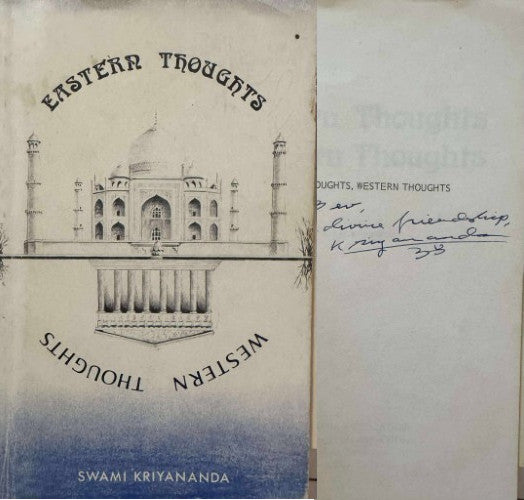 EASTERN THOUGHTS
WESTERN THOUGHTS
SWAMI KRIYANANDA
rn Thoughts
rn Thoughts
OUGHTS, WESTERN THOUGHTS
divine friendship,
Kriyananda
ॐ